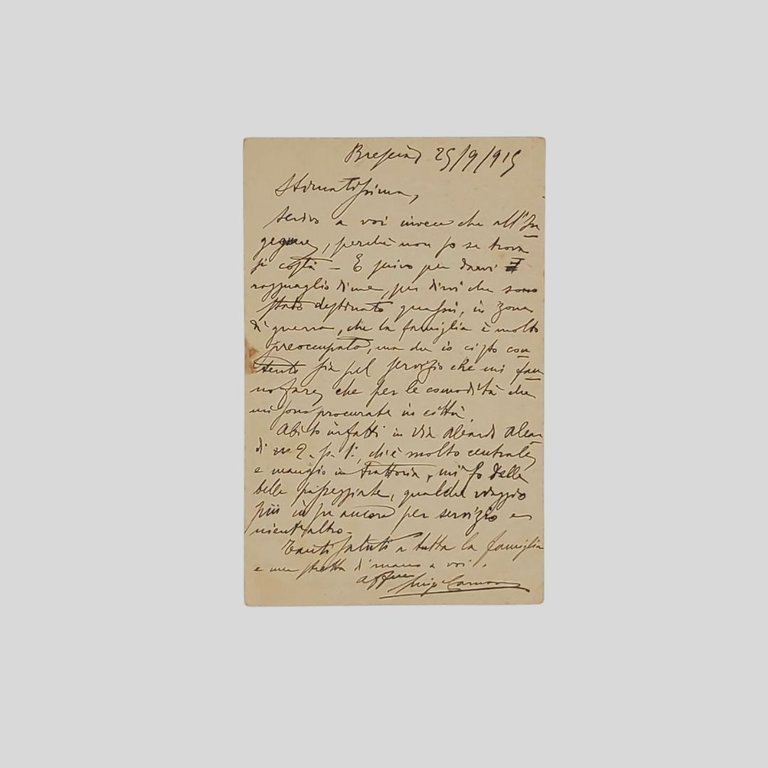 Brescia 25/9/915
Stimatissima,
scrivo a voi invece che all'In
gegnere, perchè non so se trova
si costà - E scrivo per darvi
ragguaglio di me, per dirvi che sono
stato destinato quassù, in zona
di guerra, che la famiglia è molto
preoccupata, ma che io ci sto con
tento sia pel servizio che mi fan
no fare, che per le comodità che
mi sono procurate in città.
Abito infatti in Via Aleardo Alear
di n. 2. p. 1°, che è molto centrale,
e mangio in trattoria, mi fo delle
belle passeggiate, qualche viaggio
più in su ancora per servizio e
nient'altro.
Tanti saluti a tutta la famiglia
e una stretta di mano a voi.
aff.mo Luigi